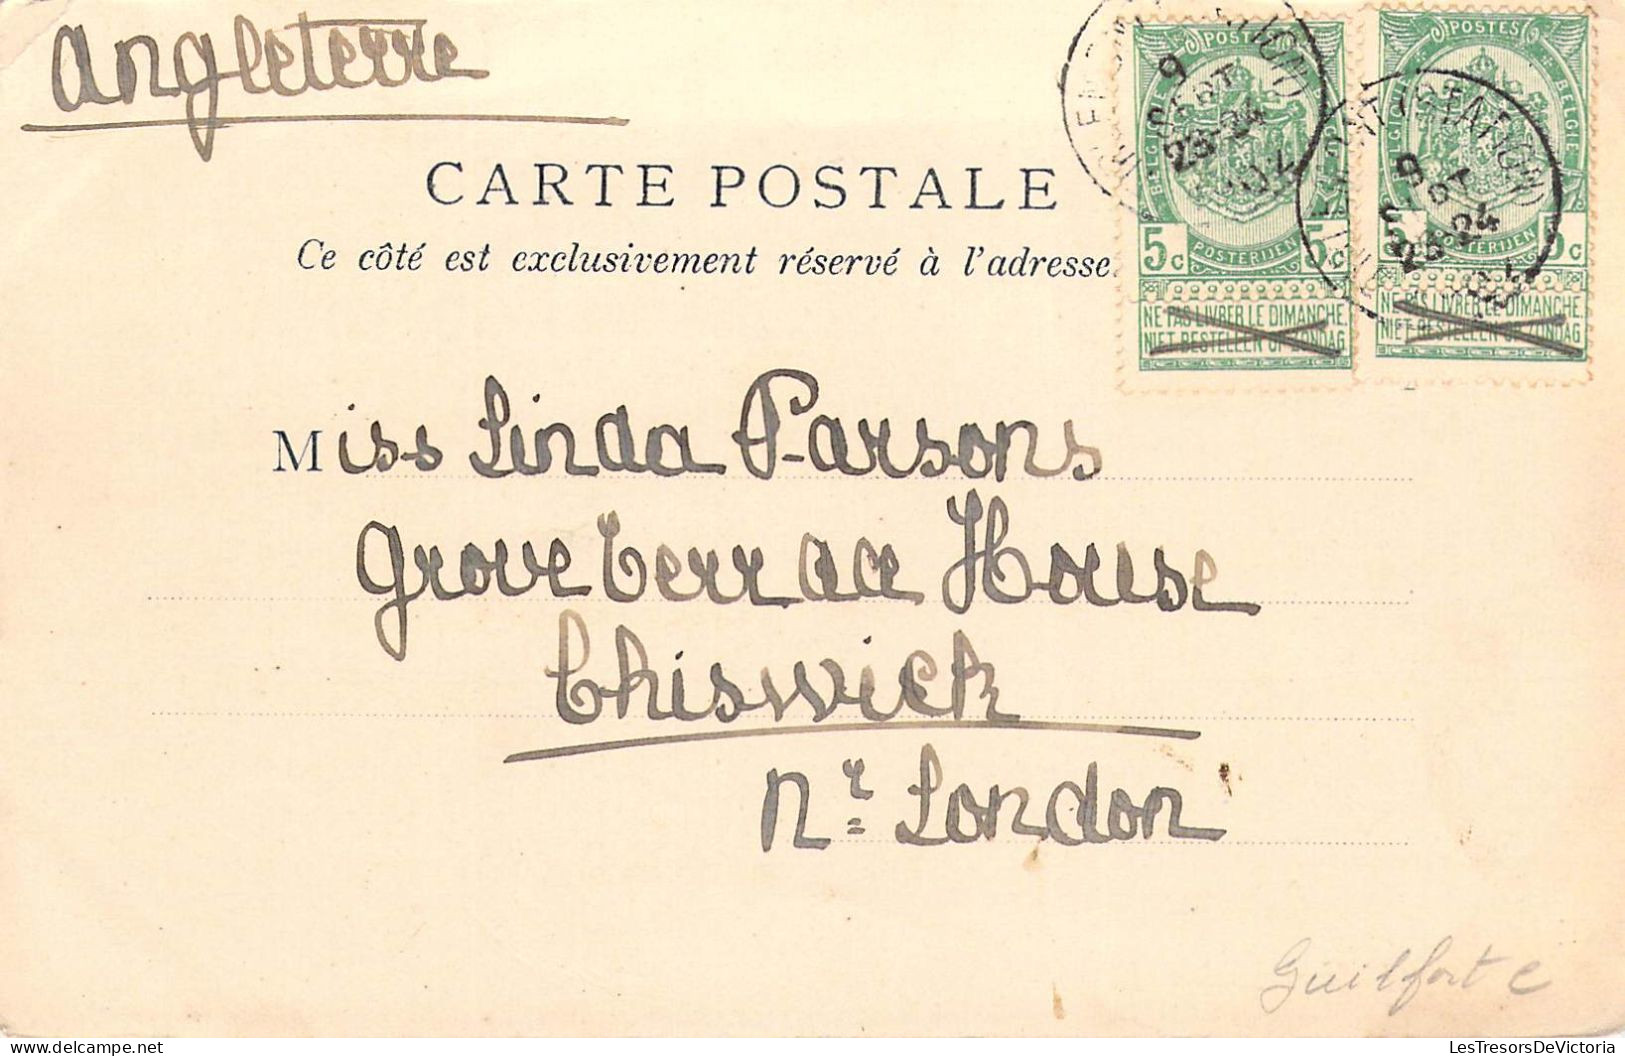 Angleterre
CARTE POSTALE
Ce côté est exclusivement réservé à l'adresse.
POSTES
BELGIQUE
5c
POSTERIJEN
NE PAS LIVRER LE DIMANCHE
NIET BESTELLEN OP ZONDAG
9
23-24
POSTES
BELGIQUE
BELGIE
5c
POSTERIJEN
5c
NE PAS LIVRER LE DIMANCHE
NIET BESTELLEN OP ZONDAG
9
23-24
Miss Linda Parsons
Grove Terrace House
Chiswick
Nr London
LesTresorsDeVictoria